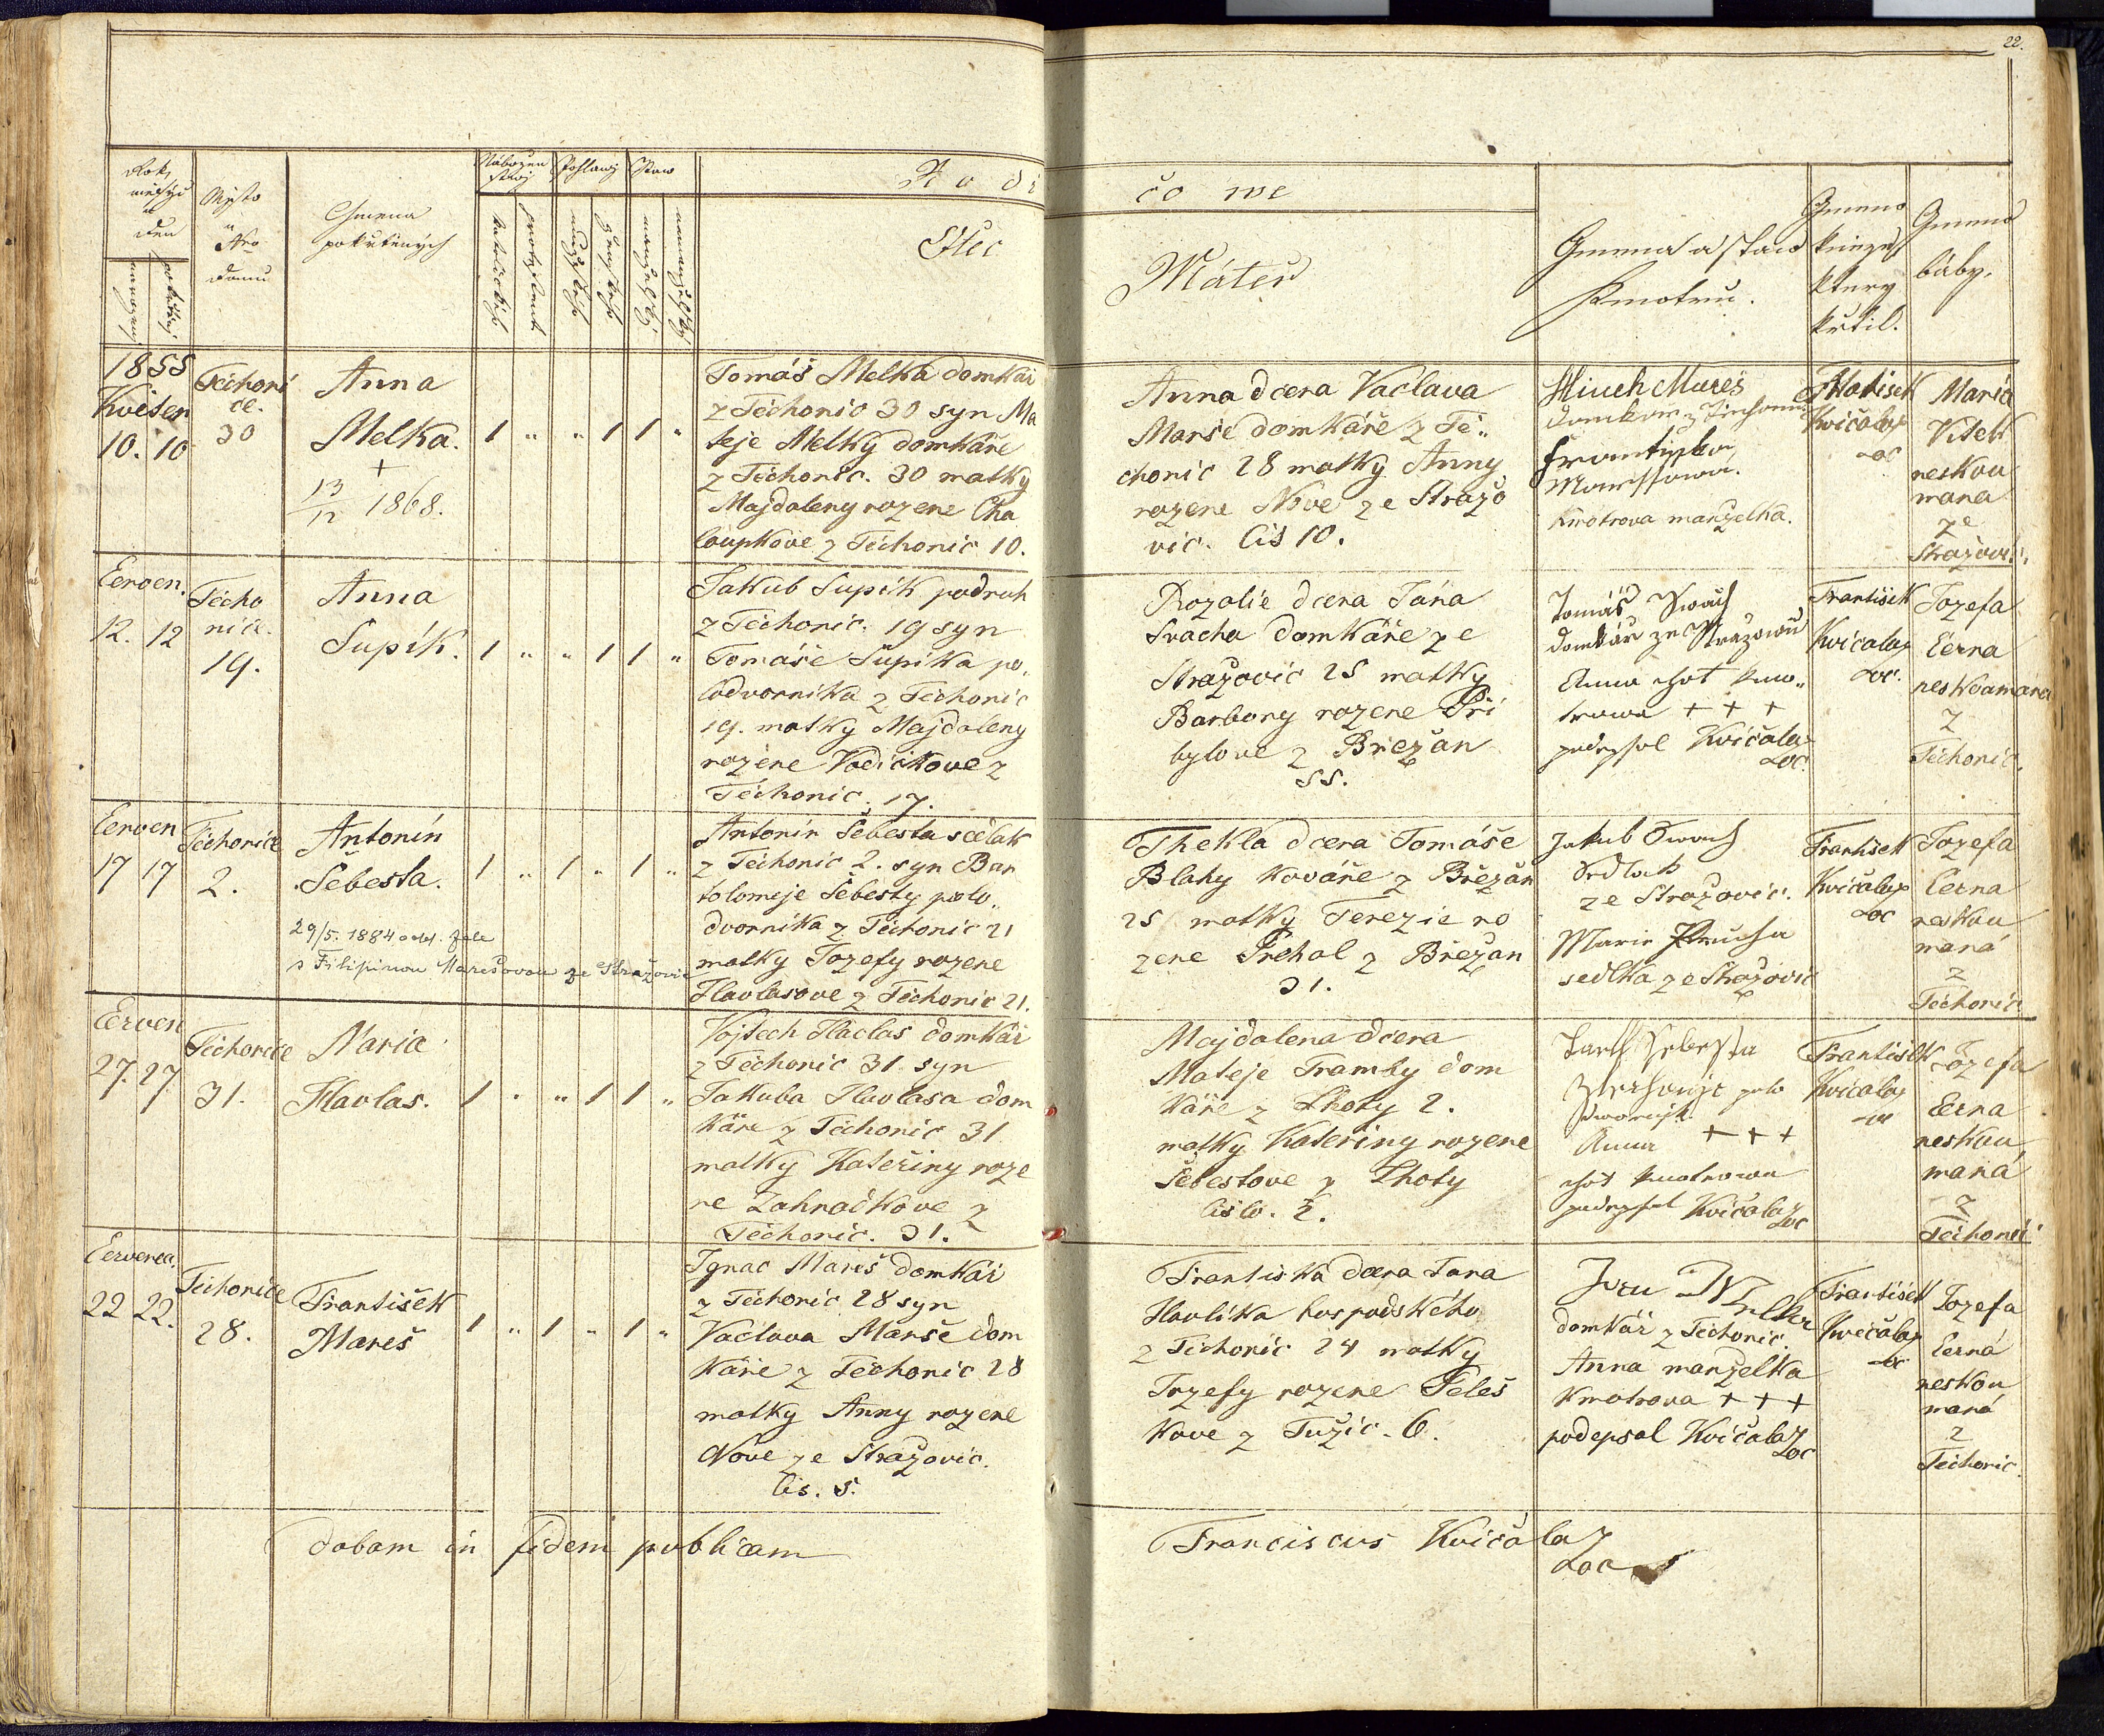 22.
Rok, měsýc a den
narozenj
pokřtěnj
Mjsto a Nro domu
Gmena pokřtěných
Nábožen stwj
katolické
protestant
Pohlawj
mužské
ženské
Staw
manželský
nemanželský
Rodičowe
Otec
Máteř
Gmena a staw Kmotrů.
Gmeno kněze který křtil.
Gmeno báby.
1855
Květen
10. 10
Těchoni
ce.
30
Anna
Melka.
+
13/12 1868.
1 " " 1 1 "
Tomáš Melka domkář
z Těchonic 30 syn Ma
teje Melky domkáře
z Těchonic. 30 matky
Majdaleny rozene Cha
loupkove z Těchonic 10.
Anna dcera Vaclava
Marše domkáře z Tě„
chonic 28 matky Anny
rozene Nove ze Stražo
vic. čis 10.
Mareš
Františka
Kmotrova manzelka.
Kvičala
Loc
Marie
Vitek
neskou
mana
ze
Stražovic.
Červen.
12. 12
Těcho
nice.
19.
Anna
Šupík.
1 " " 1 1 "
Jakub Šupík podruh
z Těchonic. 19 syn
Tomáše Šupíka po„
lodvornika z Těchonic
19. matky Majdaleny
rozene Vodičkove z
Těchonic. 17.
Rozalie dcera Jána
Svacha domkáře ze
Stražovic 25 matky
Barbory rozene Při
bylove z Břežan
55.
Tomáš Swach
domkář ze Stražowic
Anna choť kmo„
trowa + + +
podepsal Kvičala
Loc.
František
Kvičala
Loc.
Jozefa
Černa
neskoumana
z
Těchonic.
Červen
17 17
Těchonice
2.
Antonín
Šebesta.
29/5. 1884 odd. zde
s Filipinou Marešovou ze Stražovic
1 " 1 " 1 "
Antonín Šebesta sedlak
z Těchonic 2. syn Bar
tolomeje Šebesty polo„
dvornika z Těchonic 21
matky Jozefy rozene
Havlasove z Těchonic 21.
Thekla dcera Tomáše
Blahy kováře z Břežan
25 matky Terezie ro
zene Prchal z Břežan
31.
Jakub Swach
Sedlak
ze Stražovic.
Marie Průcha
sedlka ze Stražovic
František
Kvičala
Loc
Jozefa
Černa
neskou
maná
z
Těchonic.
Červen
27. 27
Těchonice
31.
Maria
Havlas.
1 " " 1 1 "
Vojtech Havlas domkář
z Těchonic 31. syn
Jakuba Havlasa dom
káře z Těchonic 31
matky Kateřiny roze
ne Zahradkove z
Těchonic. 31.
Majdalena dcera
Mateje Tramby dom
káře z Lhoty 2.
matky Kateřiny rozene
Šebestove z Lhoty
čislo. 2.
Šebesta
Anna + + +
choť kmotrowa
podepsal Kvičala
Loc
František
Kvičala
Loc
Jozefa
Černa
neskou
maná
z
Těchonic
Července.
22 22.
Těchonice
28.
František
Mareš
1 " 1 " 1 "
Ignac Mareš domkář
z Těchonic 28 syn
Vaclava Marše dom
káře z Těchonic 28
matky Anny rozene
Nove ze Stražovic.
čis. 5.
Františka dcera Jana
Havlika hospodského
z Těchonic 24 matky
Jozefy rozene Peleš
kove z Tužic. 6.
Jan Melka
domkář z Těchonic.
Anna manzelka
kmotrova + + +
podepsal Kvičala
Loc
František
Kvičala
Loc
Jozefa
Černá
neskou
maná
z
Těchonic.
dabam in fidem publicam
Franciscus Kvičala
Loc